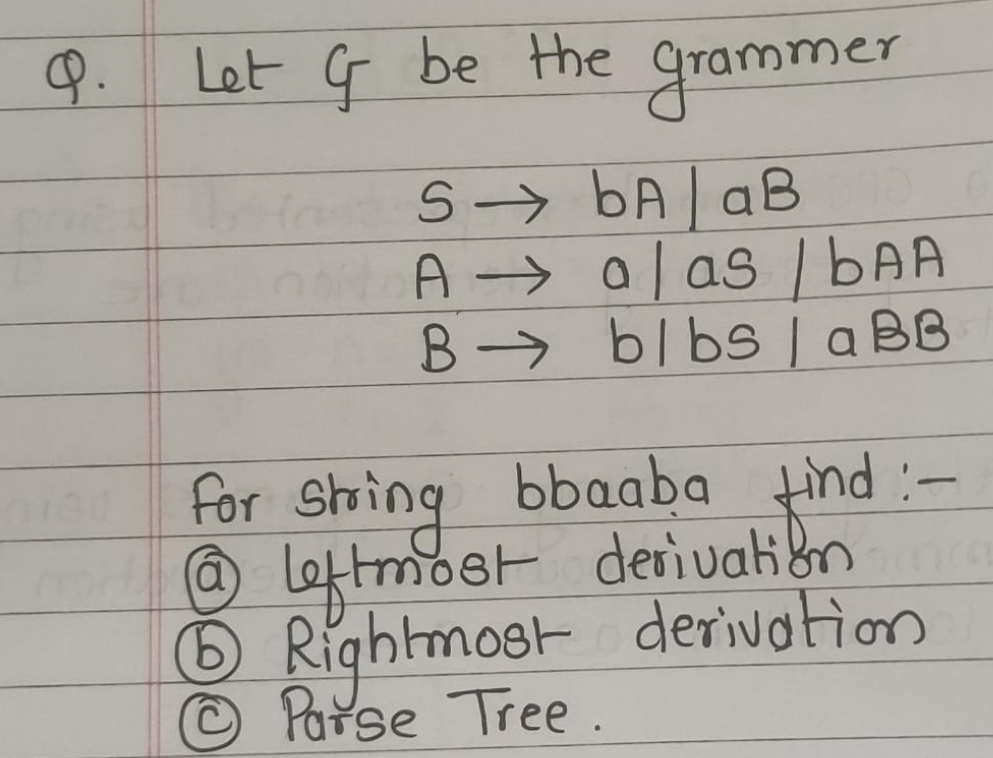 Q. Let G be the grammer
S → bA | aB
A → a | aS | bAA
B → b | bS | aBB
For string bbaaba find :-
ⓐ Leftmost derivation
ⓑ Rightmost derivation
ⓒ Parse Tree.